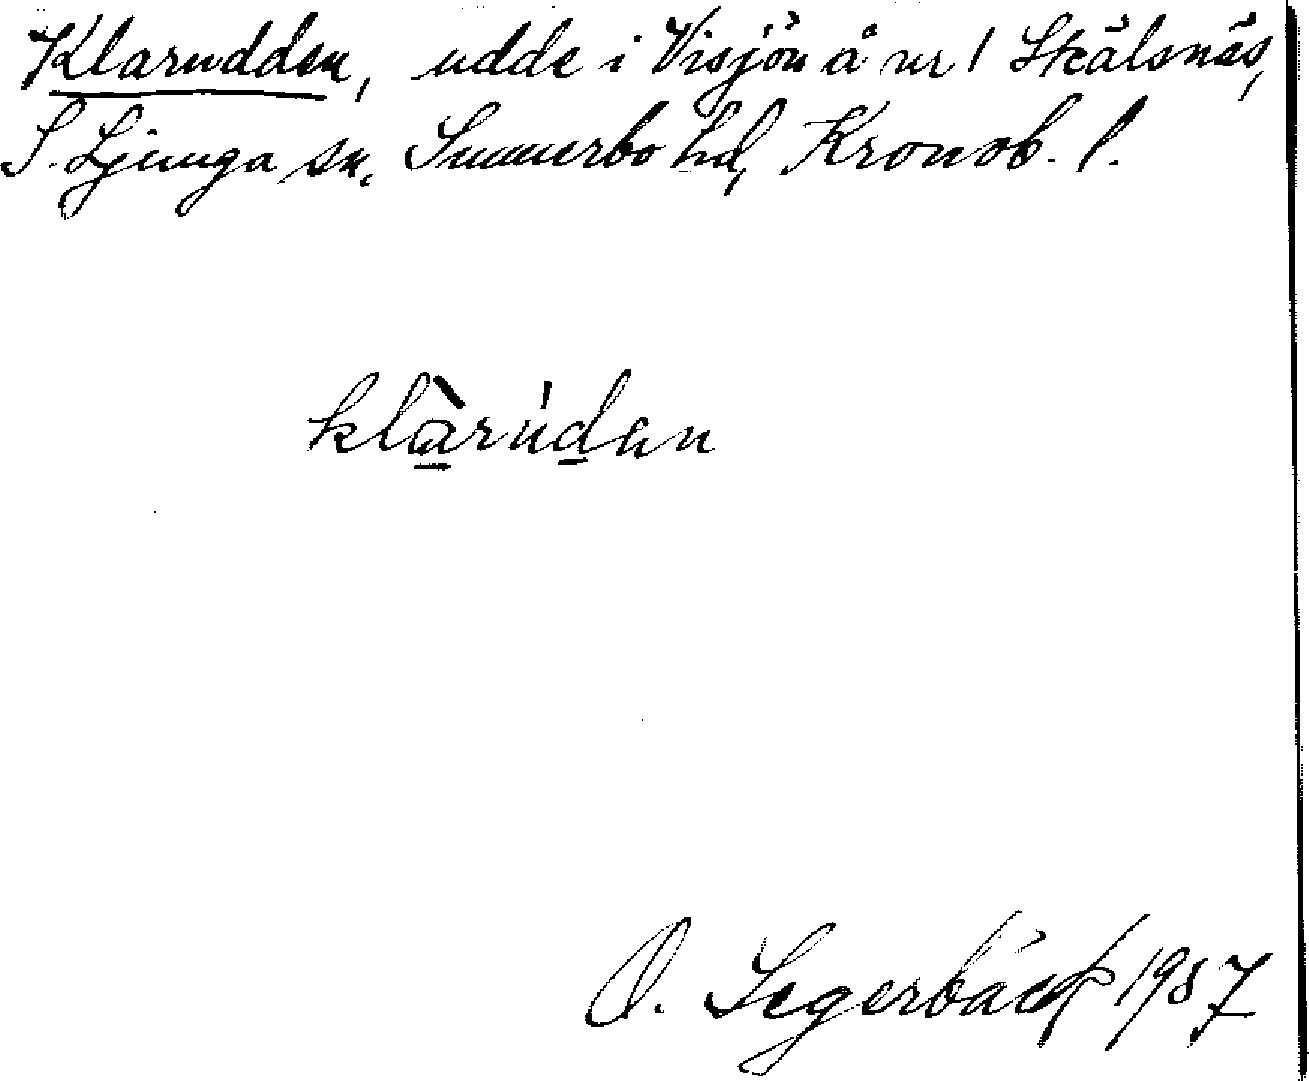 Klarudden, udde i Visjön å nr 1 Skälsnäs,
S. Ljunga sn, Sunnerbo hd, Kronob. l.
klàrúden
O. Segerbäck 1937